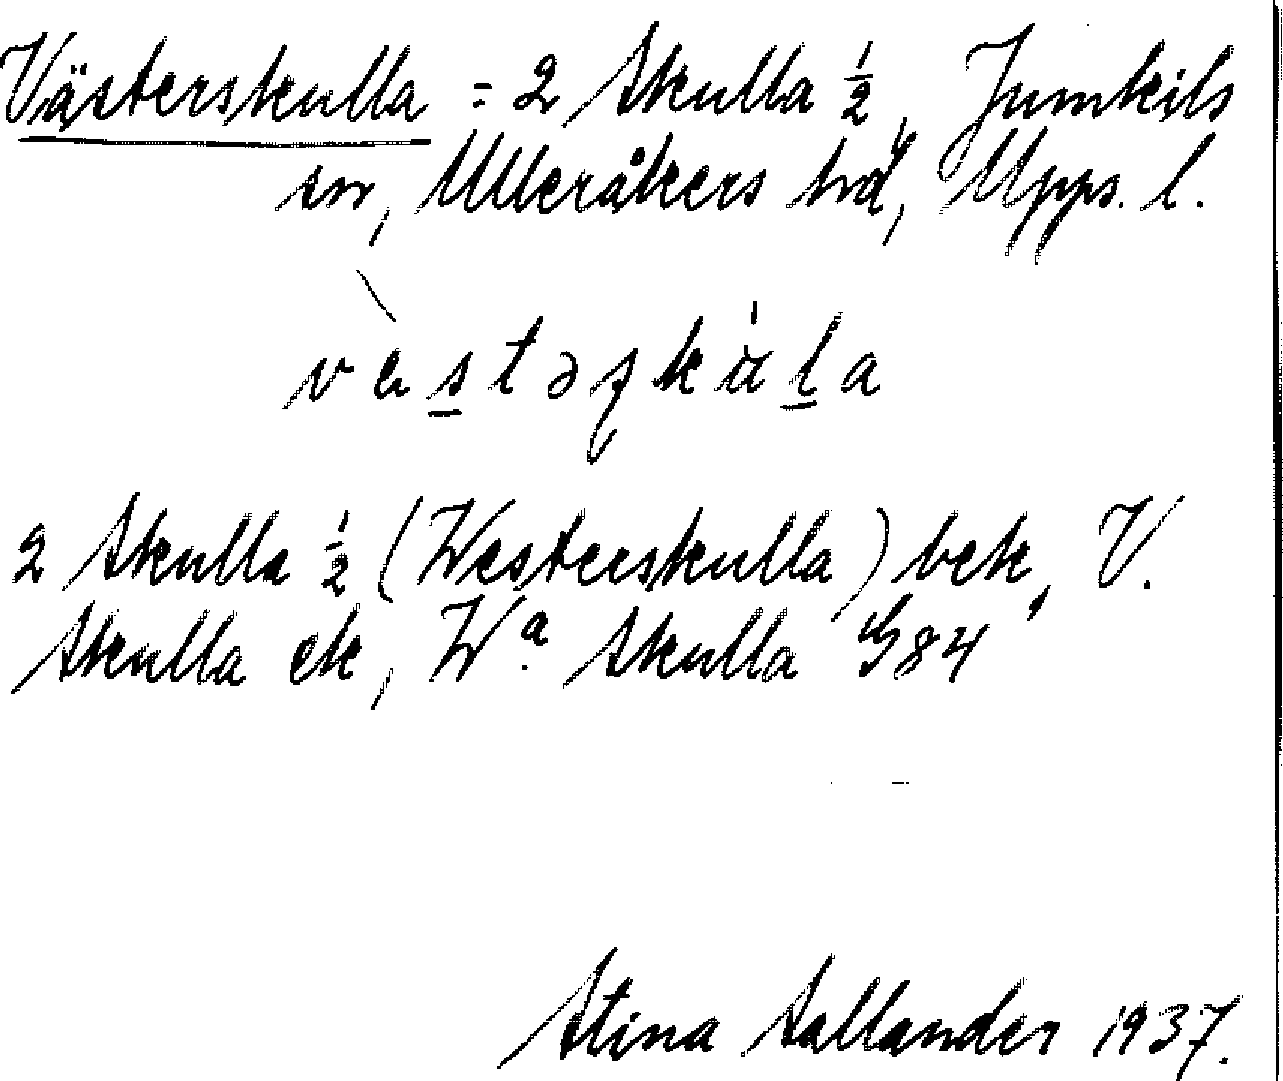 Västerskulla = 2 Skulla ½, Jumkils
sn, Ulleråkers hd, Upps. l.
2 Skulla ½ (Westerskulla) bek, V.
Skulla ek, Wa. Skulla G84
Stina Sallander 1937.